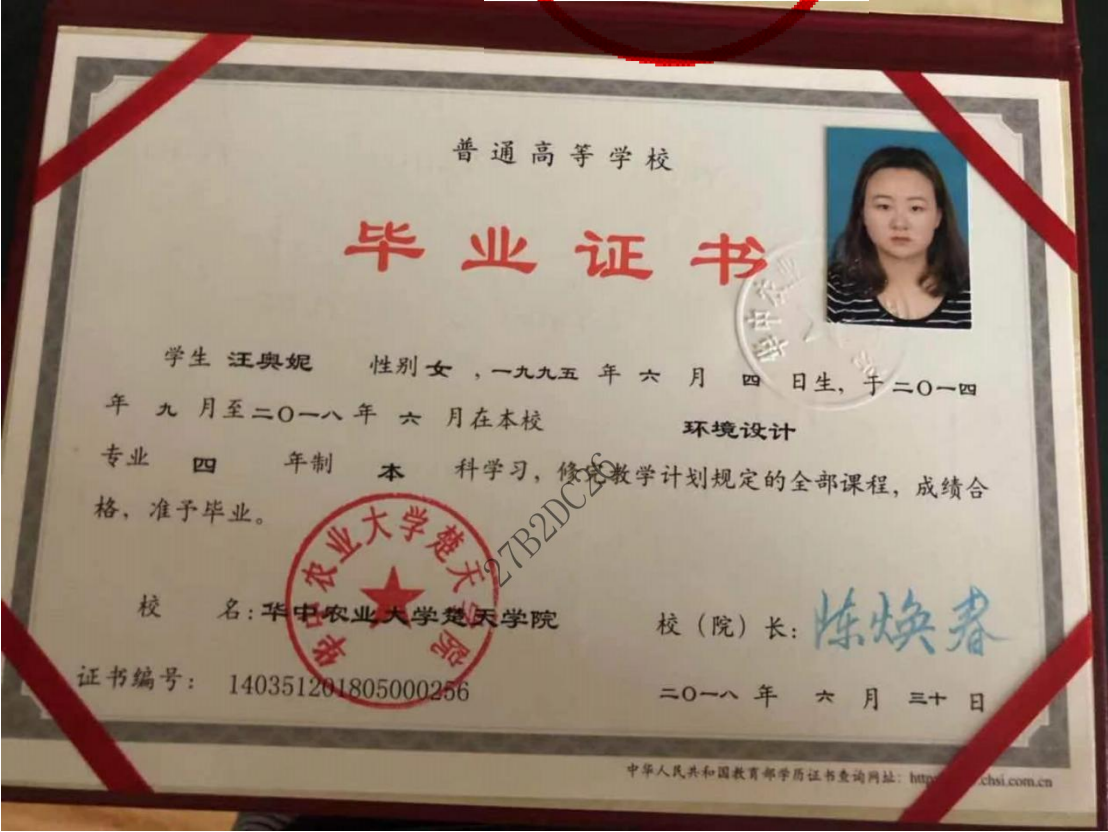 普通高等学校
毕业证书
学生 汪奥妮 性别 女 ,一九九五 年 六 月 四 日生, 于二〇一四
年 九 月至二〇一八 年 六 月在本校 环境设计
专业 四 年制 本 科学习, 修完教学计划规定的全部课程, 成绩合
格, 准予毕业。
27B2DC26
华中农业大学楚天学院
校 名:华中农业大学楚天学院
校（院）长: 陈焕春
证书编号: 140351201805000256
二〇一八 年 六 月 三十 日
中华人民共和国教育部学历证书查询网址: http chsi.com.cn
华中农业